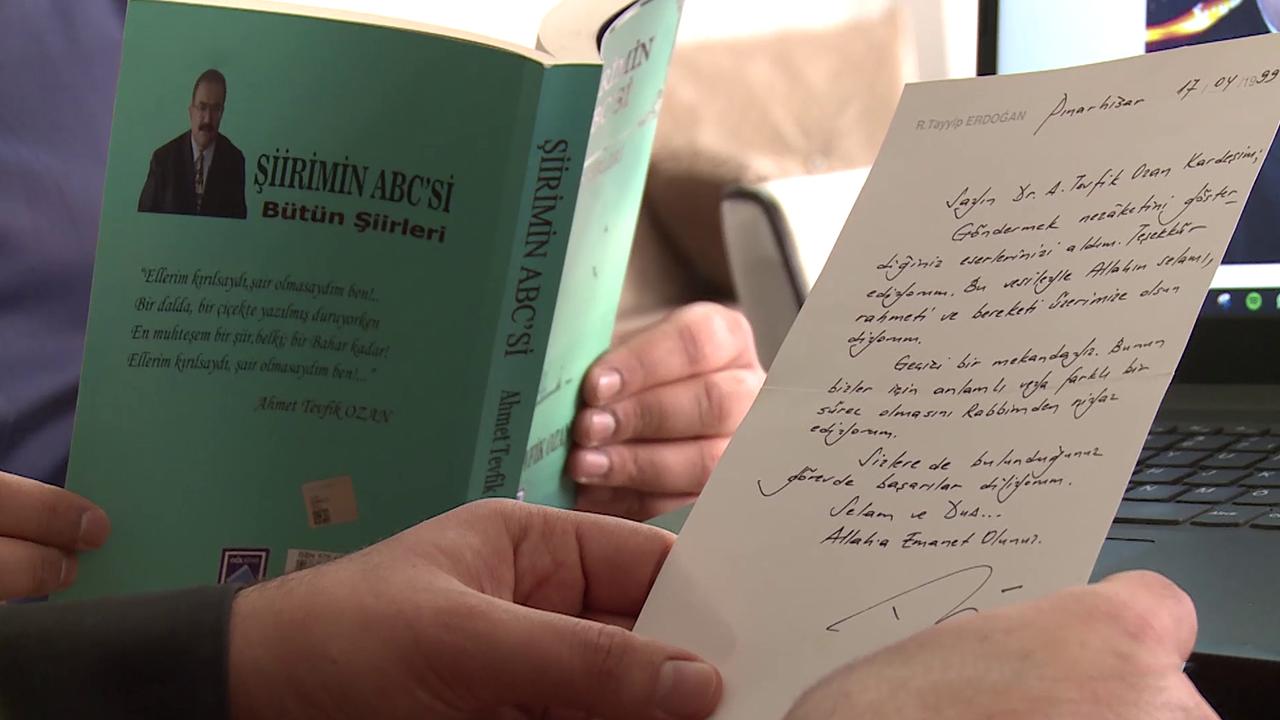 ŞİİRİMİN ABC'Sİ
Bütün Şiirleri
"Ellerim kırılsaydı,şair olmasaydım ben!..
Bir dalda, bir çiçekte yazılmış duruyorken
En muhteşem bir şiir,belki; bir Bahar kadar!
Ellerim kırılsaydı, şair olmasaydım ben!..."
Ahmet Tevfik OZAN
ŞİİRİMİN ABC'Sİ
Ahmet Tevfik
R.Tayyip ERDOĞAN
Pınarhisar 17/04/1999
Sayın Dr. A. Tevfik Ozan Kardeşim;
Göndermek nezâketini göster-
diğiniz eserlerinizi aldım. Teşekkür
ediyorum. Bu vesileyle Allahın selamı,
rahmeti ve bereketi üzerimize olsun
diyorum.
Geçici bir mekandayız. Bunun
bizler için anlamlı veya farklı bir
süreç olmasını Rabbimden niyaz
ediyorum.
Sizlere de bulunduğunuz
görevde başarılar diliyorum.
Selam ve Dua...
Allah'a Emanet Olunuz.